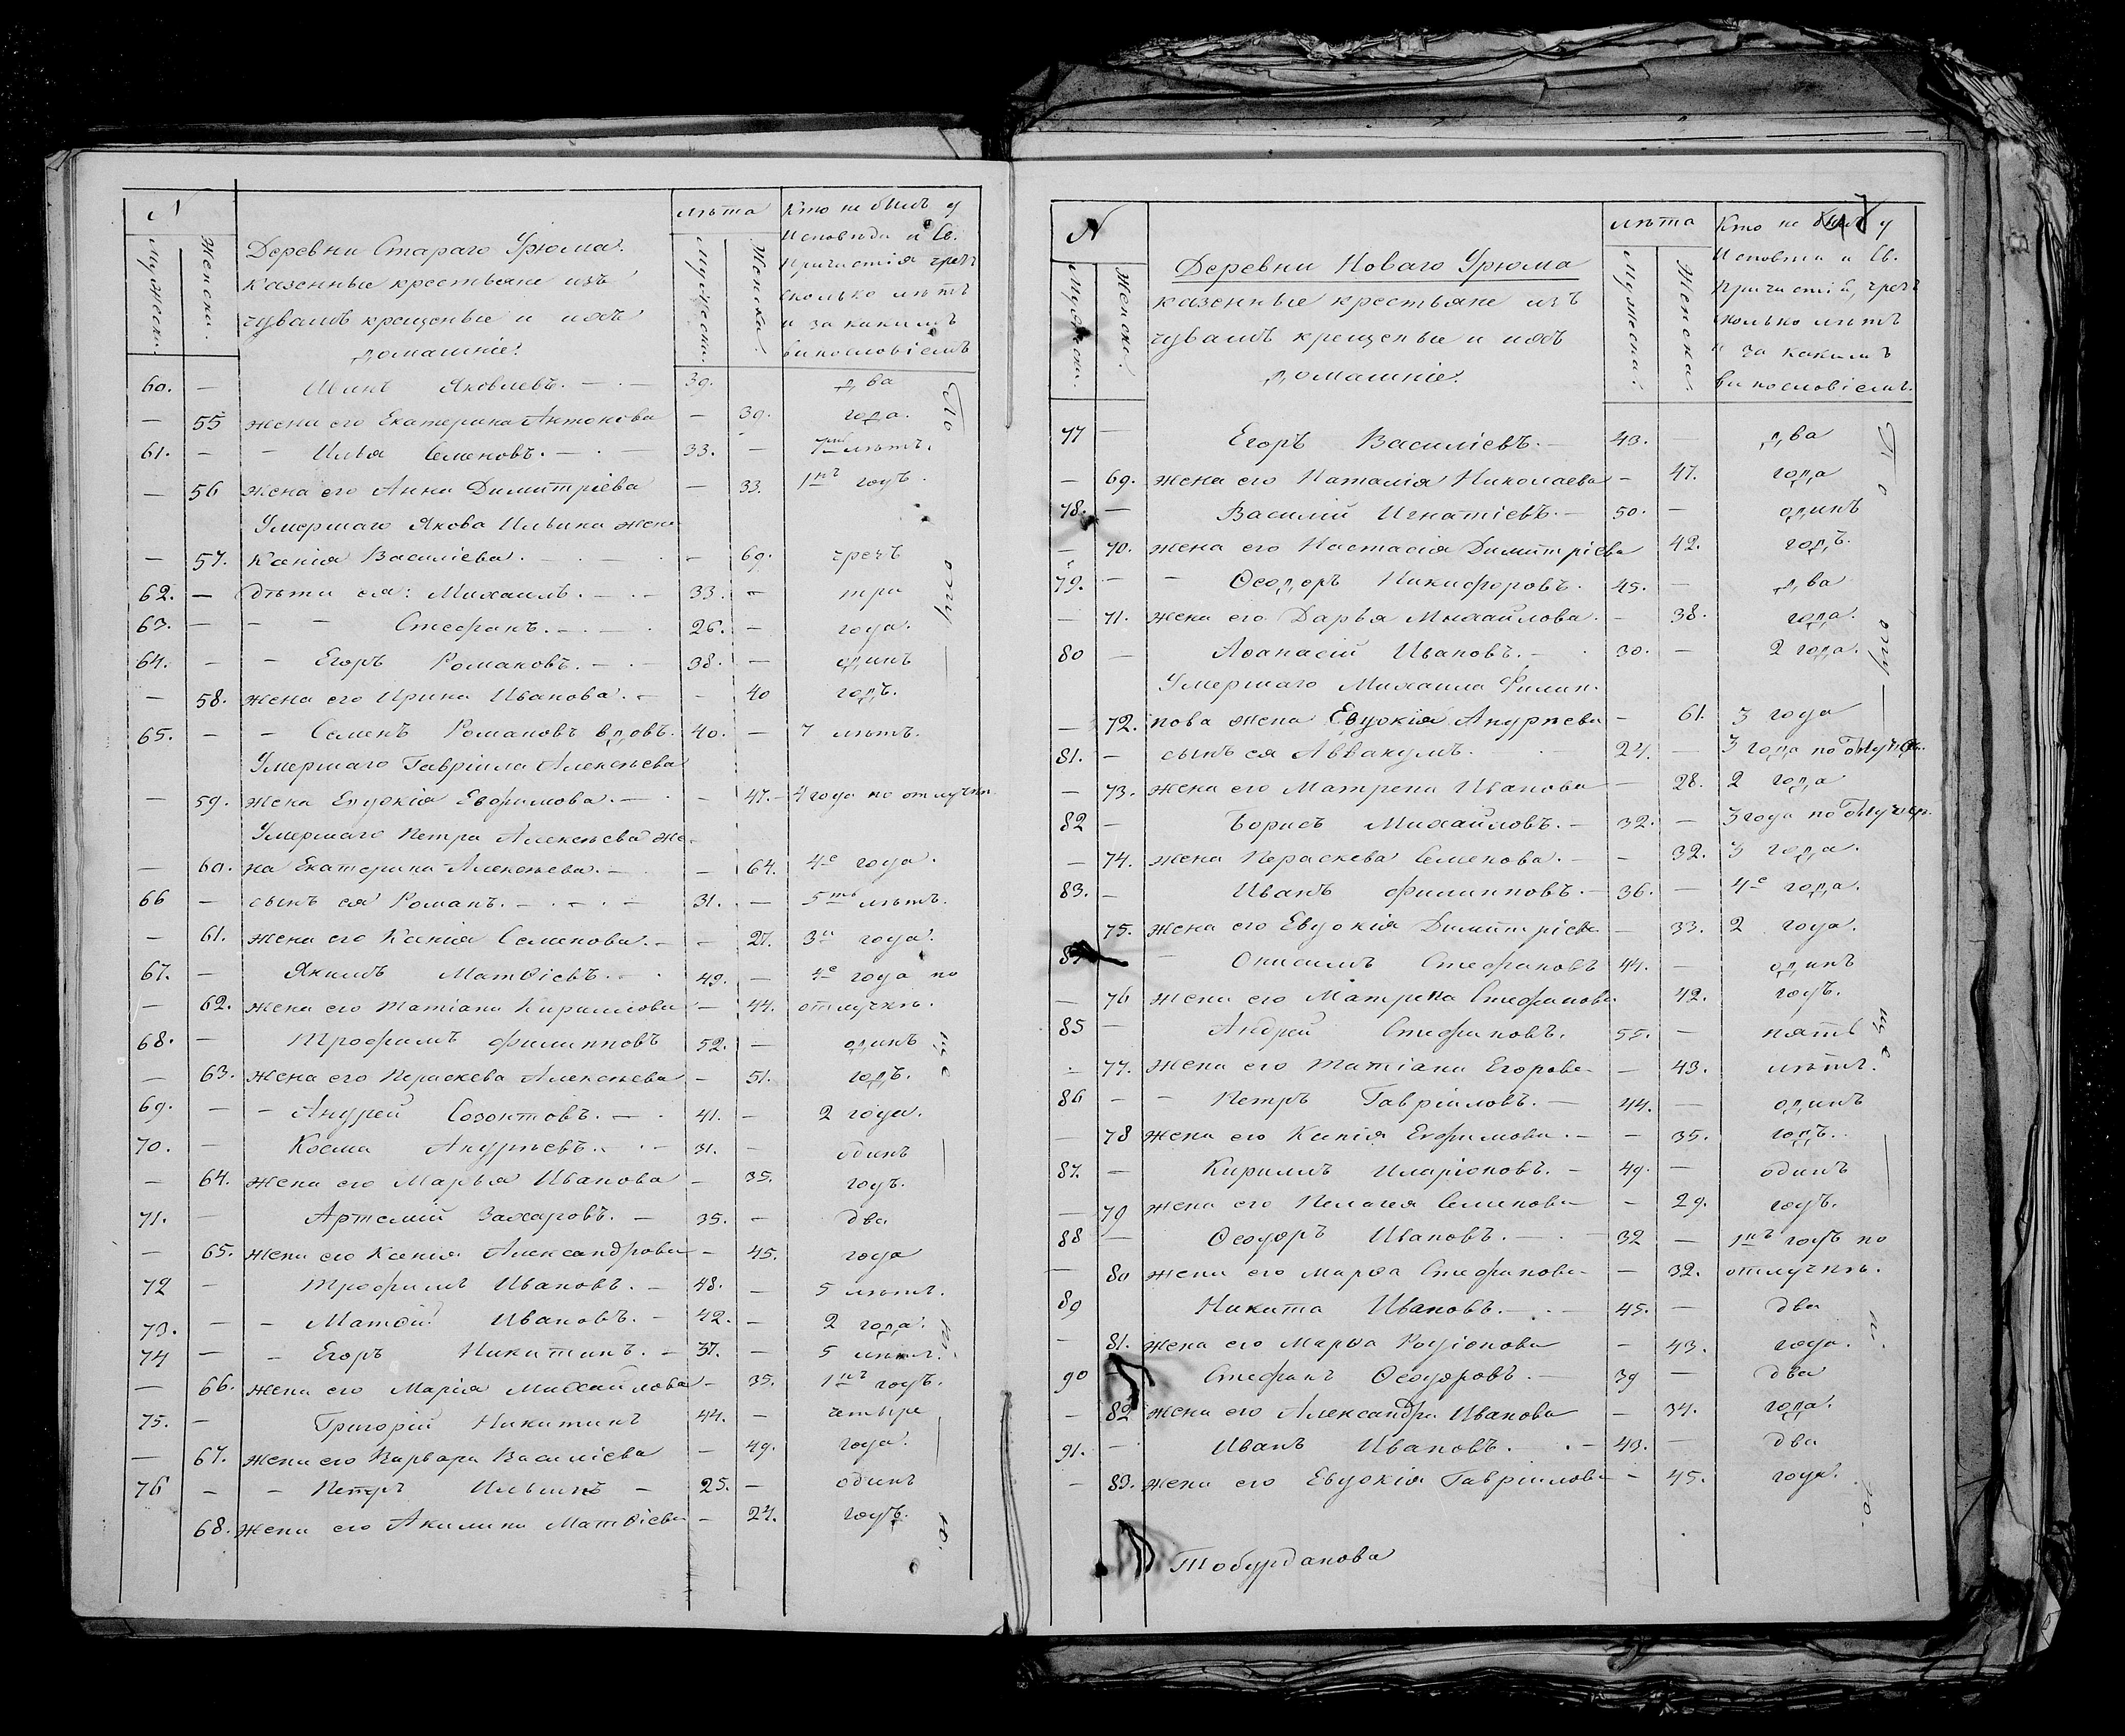 №
Мужеска.
Женска.
Деревни Стараго Урюма.
казенные крестьяне изъ
чувашъ крещеные и ихъ
домашніе:
лѣта
Мужеска.
Женска.
Кто не былъ у
Исповѣди и Св.
Причастія чрезъ
сколько лѣтъ
и за какимъ
винословіемъ
60. — Яковлевъ. — . — 39. два
— 55 жена его Екатерина Антонова — 39. года.
61. — — Илья Семеновъ. — . — 33. — 7мь лѣтъ.
— 56 жена его Анна Димитріева — 33. 1нъ годъ.
Умершаго Якова Ильина жена
— 57. Ксенія Василіева. — 69. чрезъ
62. — дѣти ея: Михаилъ. — . — 33. — три
63. — — — Стефанъ. — . — 26. — года.
64. — — Егоръ Романовъ. — . — 38. — одинъ
— 58. жена его Ирина Иванова. — — 40 годъ.
65. — — Семенъ Романовъ вдовъ. 40. — 7 лѣтъ.
Умершаго Гавріила Алексѣева
— 59. жена Евдокія Евфимова. — . — 47. — 4 года по отлучкѣ.
Умершаго Петра Алексѣева же-
— 60. на Екатерина Алексѣева. — — 64. 4е года.
66 — сынъ ея Романъ. — . — . — 31. — 5ть лѣтъ.
— 61. жена его Ксенія Семенова. — — 27. 3и года.
67. — Якимъ Матѳіевъ. — . 49. — 4е года по
— 62. жена его Татіана Кириллова — 44. отлучкѣ.
68. — Трофимъ Филипповъ 52. — одинъ
— 63. жена его Параскева Алексѣева — 51. годъ.
69. — — Андрей Созонтовъ. — . 41. — 2 года.
70. — Косма Андреевъ. . — 31. — одинъ
— 64. жена его Марья Иванова — 35. годъ.
71. — Артемій Захаровъ. — 35. — два
— 65. жена его Ксенія Александрова — 45. года
72 — Трофимъ Ивановъ. — 48. — 5 лѣтъ.
73. — — Матѳій Ивановъ. — 42. — 2 года.
74 — — Егоръ Никитинъ. — 37. — 5 лѣтъ.
— 66. жена его Марія Михайлова — 35. 1нъ годъ.
75. — Григорій Никитинъ 44. — четыре
— 67. жена его Варвара Василіева — 49. года.
76 — — Петръ Ильинъ — 25. — одинъ
68. жена его Акилина Матѳіева — 24. годъ.
№
Мужеска.
Женска.
Деревни Новаго Урюма
казенные крестьяне изъ
чувашъ крещеные и ихъ
домашніе.
лѣта
Мужеска.
Женска.
Кто не былъ у
Исповѣди и Св.
Причастій, чрезъ
сколько лѣтъ
и за какимъ
винословіемъ.
77 — Егоръ Василіевъ. — 43. два
— 69. жена его Наталія Николаева — 47. года
78. — Василій Игнатіевъ. — 50. — одинъ
— 70. жена его Настасія Димитріева 42. годъ.
79. — — Ѳеодоръ Никифоровъ. 45. — два
— 71. жена его Дарья Михайлова. — 38. года.
80 — Аѳанасій Ивановъ. — . 30. — 2 года.
Умершаго Михаила Филип-
— 72. пова жена Евдокія Андреева — 61. 3 года
81. — сынъ ея Аввакумъ. — 24. — 3 года по отлучкѣ.
— 73. жена его Матрена Иванова — 28. 2 года
82 — Борисъ Михайловъ. — 32. — 3 года по отлучкѣ.
— 74. жена Параскева Семенова. — — 32. 3 года.
83. — Иванъ Филипповъ. — 36. — 4е года.
75. жена его Евдокія Димитріева — 33. 2 года.
84 — Онисимъ Стефановъ 44. — одинъ
— 76 жена его Матрена Стефанова. 42. годъ.
85 — Андрей Стефановъ. 55. — пять
— 77. жена его Татіана Егорова — 43. лѣтъ.
86 — — Петръ Гавріиловъ. — 44. — одинъ
— 78 жена его Ксенія Евфимова. — — 35. годъ.
87. — Кириллъ Иларіоновъ. — 49. — одинъ
— 79 жена его Пелагея Семенова — 29. годъ.
88 — Ѳеодоръ Ивановъ. — . — 32 — 1нъ годъ по
— 80 жена его Марѳа Стефанова — 32. отлучкѣ.
89 Никита Ивановъ. — . — 45. — два
— 81. жена его Марѳа Родіонова — 43. года.
90 — Стефанъ Ѳеодоровъ. — 39 — два
— 82 жена его Александра Иванова — 34. года.
91. — Иванъ Ивановъ. . — 43. — два
— 83. жена его Евдокія Гавріилова — 45. года.
Тобурданова